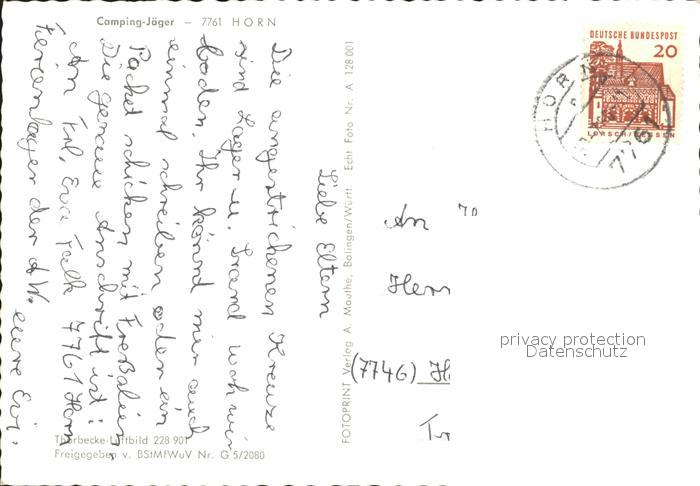 Camping-Jäger – 7761 HORN
Liebe Eltern
Die angestrichenen Kreuze
sind Lager u. Strand wo wir
baden. Ihr könnd mir auch
einmal schreiben oder ein
Packet schicken mit Freßalien.
Die genaue Anschrift ist:
An Frl. Eva Falk 7761 Horn
Ferienlager der AW. eure Evi.
Thorbecke-Luftbild 228 901
Freigegeben v. BStMfWuV Nr. G 5/2080
FOTOPRINT Verlag A. Mauthe, Balingen/Württ. Echt Foto Nr. A 128 001
DEUTSCHE BUNDESPOST
20
LORSCH/HESSEN
HORN
7761
An
Herr
(7746)
privacy protection
Datenschutz